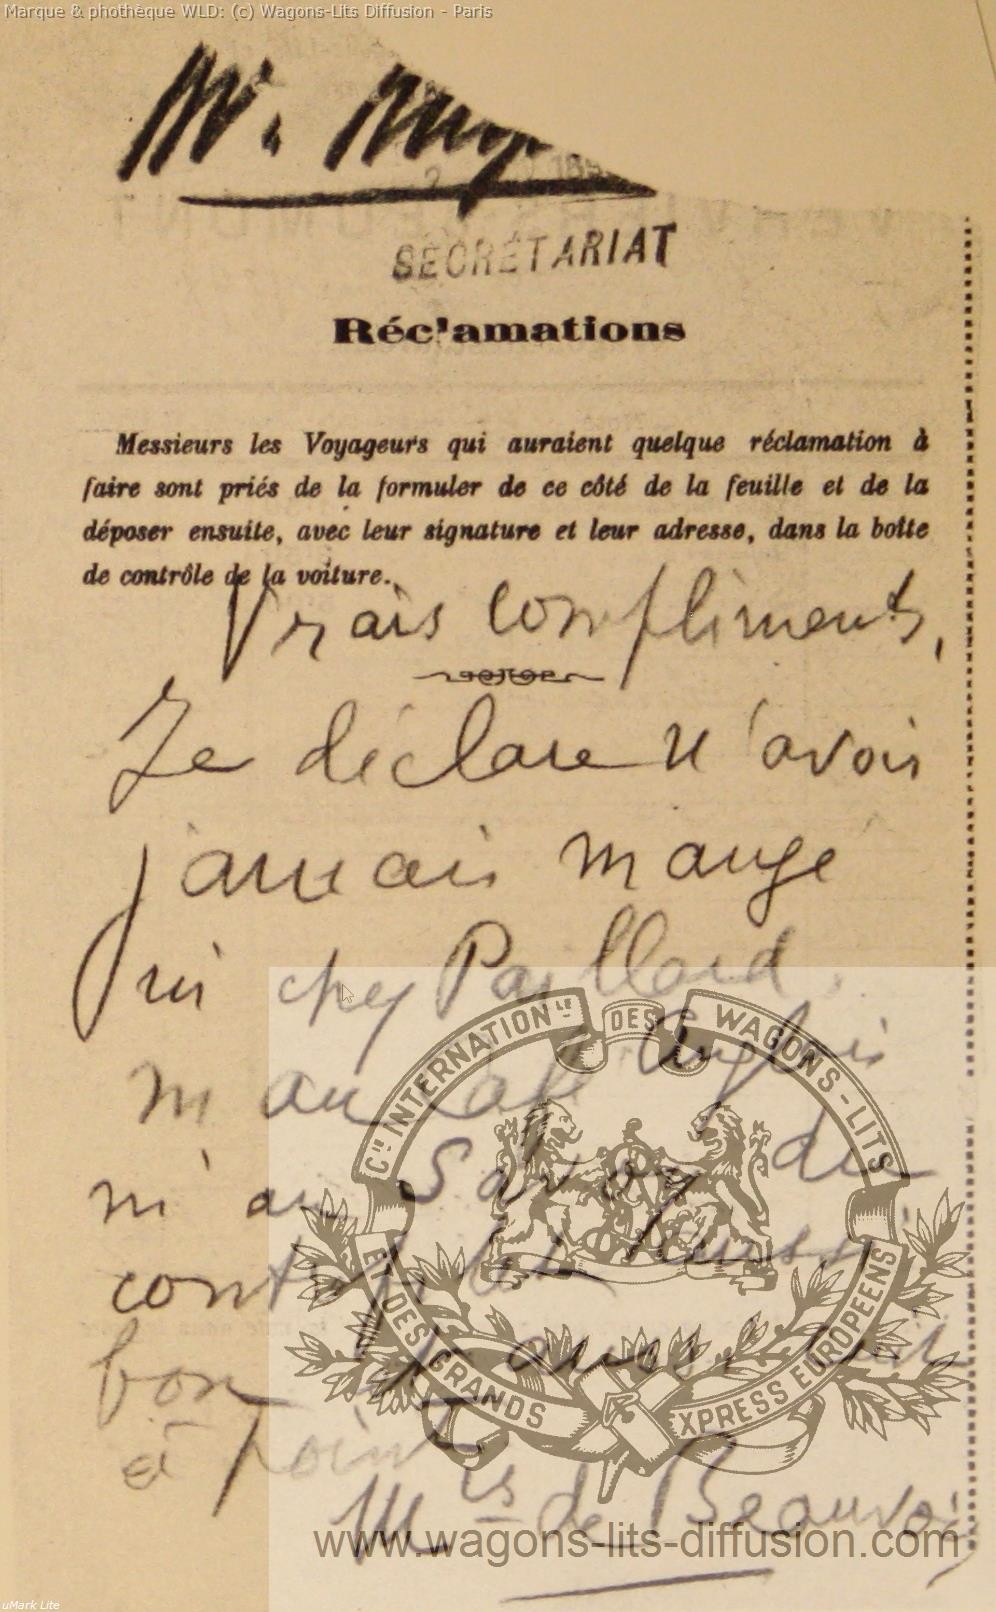 Marque & phothèque WLD: (c) Wagons-Lits Diffusion - Paris
SECRÉTARIAT
Réclamations
Messieurs les Voyageurs qui auraient quelque réclamation à
faire sont priés de la formuler de ce côté de la feuille et de la
déposer ensuite, avec leur signature et leur adresse, dans la boîte
de contrôle de la voiture.
Vrais compliments,
Je déclare n'avoir
jamais mangé
ni chez Paillard,
ni au Café Anglais
ni au Savoy des
bon
à point
Mis de Beauvoir
Cie INTERNATIONLE DES WAGONS-LITS
ET DES GRANDS EXPRESS EUROPEENS
www.wagons-lits-diffusion.com
uMark Lite